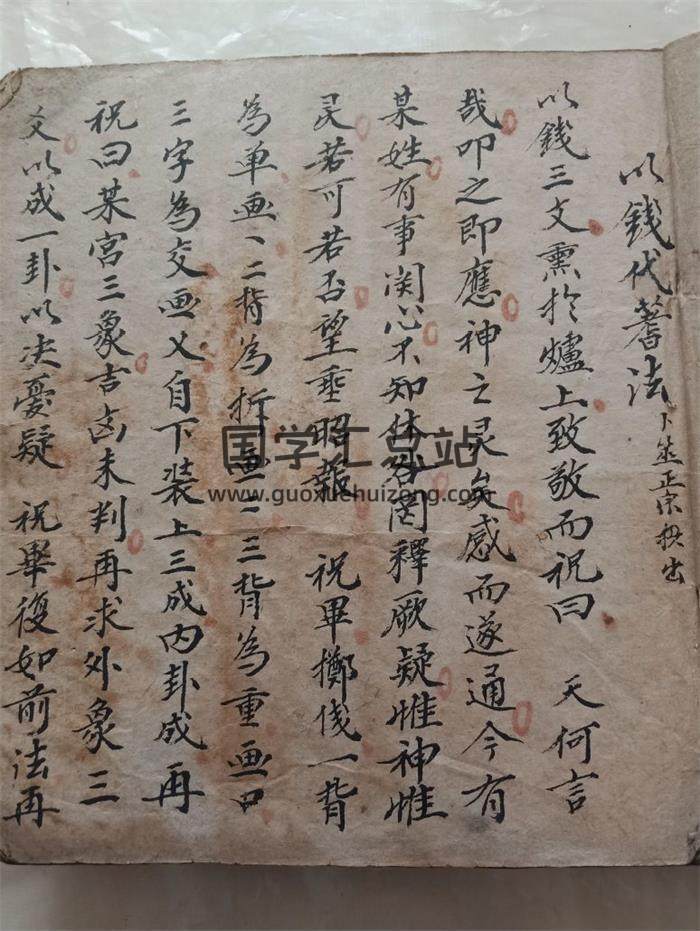 以錢代蓍法 卜筮正宗抄出
以錢三文熏於爐上致敬而祝曰 天何言
哉叩之即應神之灵矣感而遂通今有
某姓有事関心不知休咎罔釋厥疑惟神惟
灵若可若否望垂昭報 祝畢擲伐一背
為单画丶二背為拆画一一三背為重画口
三字為交画乂自下装上三成内卦成再
祝曰某宮三象吉凶未判再求外象三
爻以成一卦以决憂疑 祝畢復如前法再
国学汇总站
www.guoxuehuizong.com